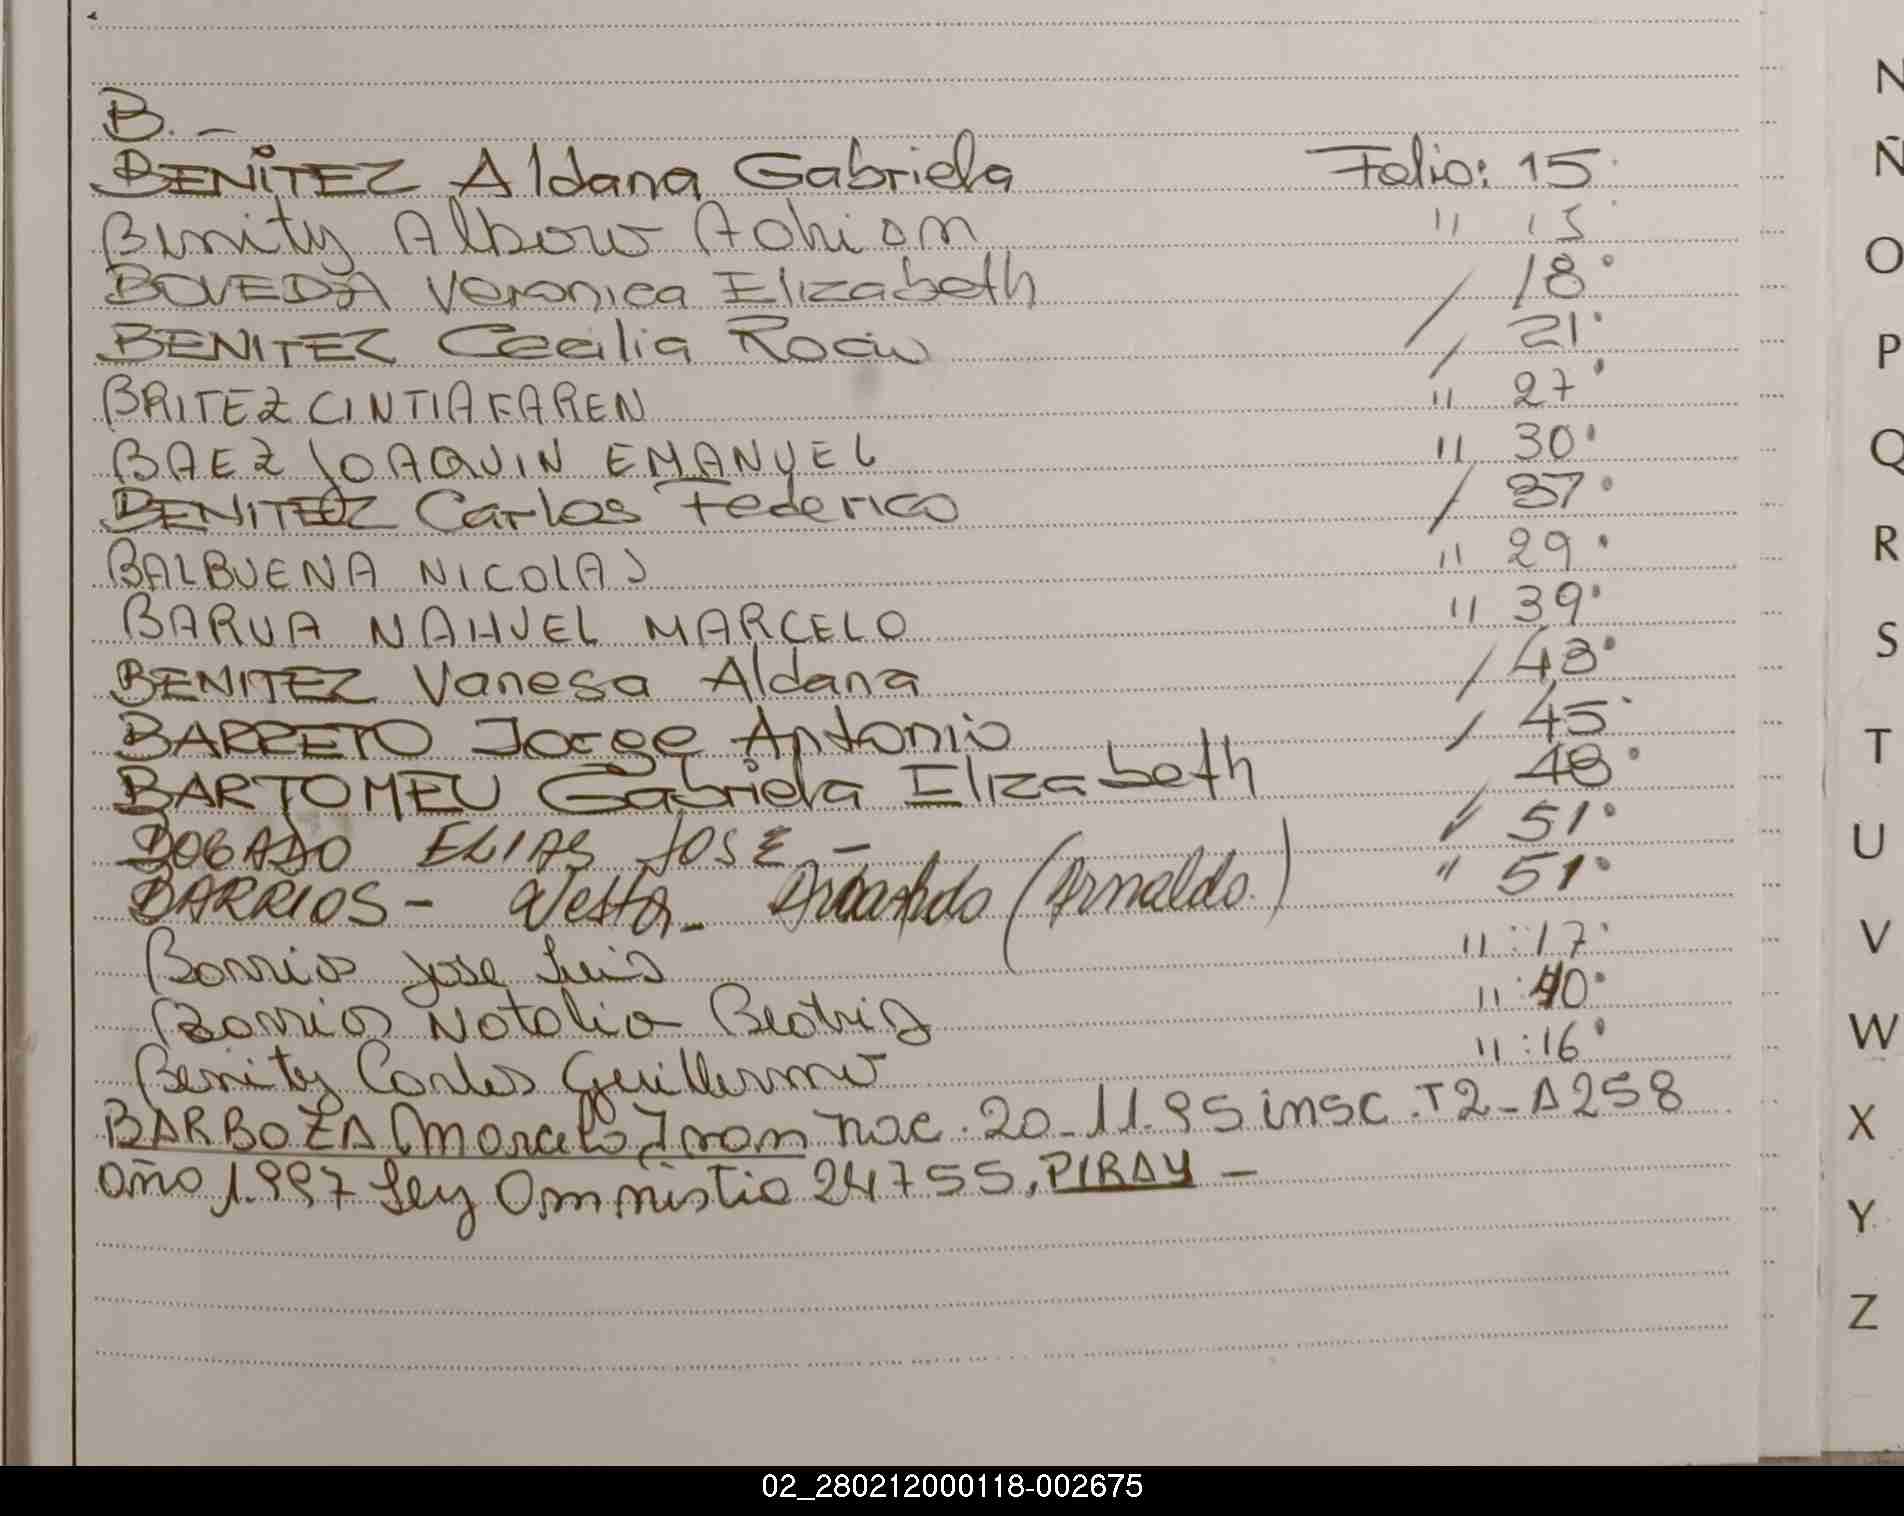 B. -
BENITEZ Aldana Gabriela Folio: 15
Benitez Albow Adrian " 13
BOVEDA Veronica Elizabeth / 18
BENITEZ Cecilia Rocio / 21
BRITEZ CINTIA KAREN " 27
BAEZ JOAQUIN EMANUEL " 30
BENITEZ Carlos Federico / 37
BALBUENA NICOLAS " 29
BARUA NAHUEL MARCELO " 39
BENITEZ Vanesa Aldana / 43
BARRETO Jorge Antonio / 45
BARTOMEU Gabriela Elizabeth 48
BOGADO ELIAS JOSE - " 51
BARRIOS - Nestor - (Arnaldo.) " 51
Barrios Jose Luis " : 17
Barrios Natalia Beatriz " : 40
Benitez Carlos Guillermo " : 16
BARBOZA Marcelo Ivan nac. 20-11-95 insc. T2-A258
año 1.997 Ley Amnistia 24755, PIRAY -
N
Ñ
O
P
Q
R
S
T
U
V
W
X
Y
Z
02_280212000118-002675